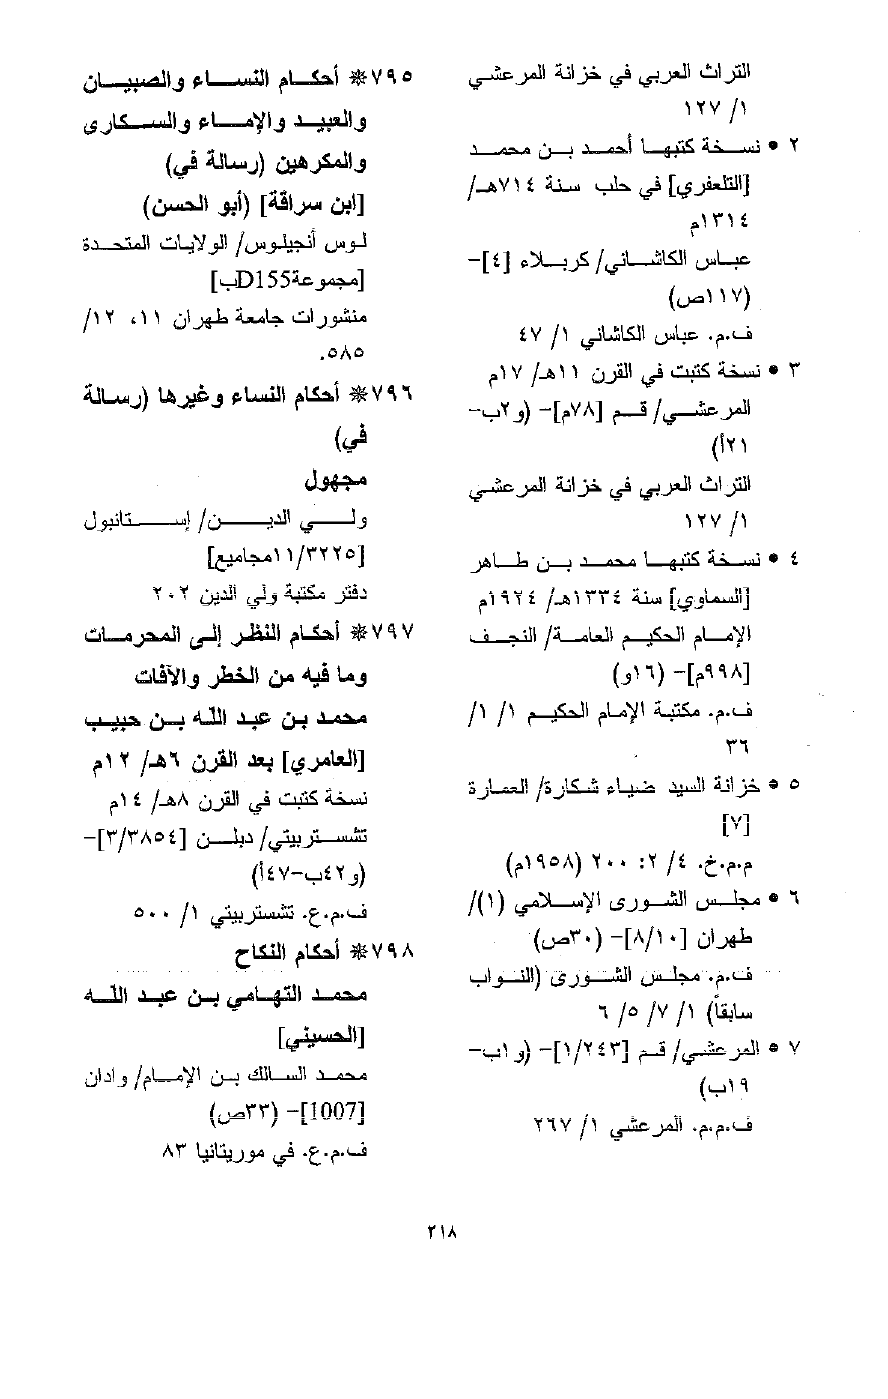 التراث العربي في خزانة المرعشي
١/ ١٢٧
٢ • نسخة كتبها أحمد بن محمد
[التلعفري] في حلب سنة ٧١٤هـ/
١٣١٤م
عباس الكاشاني/ كربلاء [٤]-
(١١٧ص)
ف.م. عباس الكاشاني ١/ ٤٧
٣ • نسخة كتبت في القرن ١١هـ/ ١٧م
المرعشي/ قم [٧٨م]- (و٢ب-
٢١أ)
التراث العربي في خزانة المرعشي
١/ ١٢٧
٤ • نسخة كتبها محمد بن طاهر
[السماوي] سنة ١٣٣٤هـ/ ١٩٢٤م
الإمام الحكيم العامة/ النجف
[٩٩٨م]- (١٦و)
ف.م. مكتبة الإمام الحكيم ١/ ١/
٣٦
٥ • خزانة السيد ضياء شكارة/ العمارة
[٧]
م.م.خ. ٤/ ٢: ٢٠٠ (١٩٥٨م)
٦ • مجلس الشورى الإسلامي (١)/
طهران [٨/١٠]- (٣٠ص)
ف.م. مجلس الشورى (النواب
سابقاً) ١/ ٧/ ٥/ ٦
٧ • المرعشي/ قم [١/٢٤٣]- (و١ب-
١٩ب)
ف.م.م. المرعشي ١/ ٢٦٧
٧٩٥* أحكام النساء والصبيان
والعبيد والإماء والسكارى
والمكرهين (رسالة في)
[ابن سراقة] (أبو الحسن)
لوس أنجيلوس/ الولايات المتحدة
[مجموعةD155ب]
منشورات جامعة طهران ١١، ١٢/
٥٨٥.
٧٩٦* أحكام النساء وغيرها (رسالة
في)
مجهول
ولي الدين/ إستانبول
[١١/٣٢٢٥مجاميع]
دفتر مكتبة ولي الدين ٢٠٢
٧٩٧* أحكام النظر إلى المحرمات
وما فيه من الخطر والآفات
محمد بن عبد الله بن حبيب
[العامري] بعد القرن ٦هـ/ ١٢م
نسخة كتبت في القرن ٨هـ/ ١٤م
تشستربيتي/ دبلن [٣/٣٨٥٤]-
(و٤٢ب-٤٧أ)
ف.م.ع. تشستربيتي ١/ ٥٠٠
٧٩٨* أحكام النكاح
محمد التهامي بن عبد الله
[الحسيني]
محمد السالك بن الإمام/ وادان
[1007]- (٣٣ص)
ف.م.ع. في موريتانيا ٨٣
٢١٨